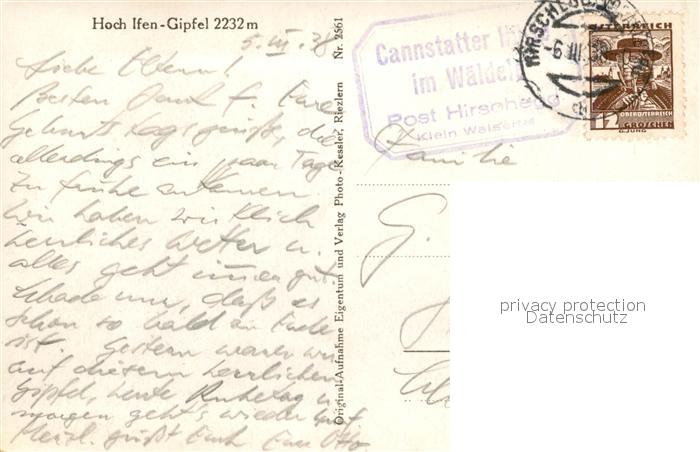 Hoch Ifen-Gipfel 2232m
5. III. 38
Liebe Eltern!
Besten Dank f. Eure
Geburtstagsgrüße, die
allerdings ein paar Tage
zu frühe ankamen
wir haben wirklich
herrliches Wetter u.
alles geht immer gut.
Schade nur, daß es
schon so bald zu Ende
ist. Gestern waren wir
auf diesem herrlichen
Gipfel, heute Ruhetag u.
morgen geht's wieder
Herzl. grüßt Euch Euer Otto
Original-Aufnahme Eigentum und Verlag Photo-Kessler, Riezlern Nr. 2561
Cannstatter
im Wäldele
Post Hirschegg
Klein Walsertal
HIRSCHEGG
-6.III.
ÖSTERREICH
OBERÖSTERREICH
12 GROSCHEN
Familie
G.
privacy protection
Datenschutz